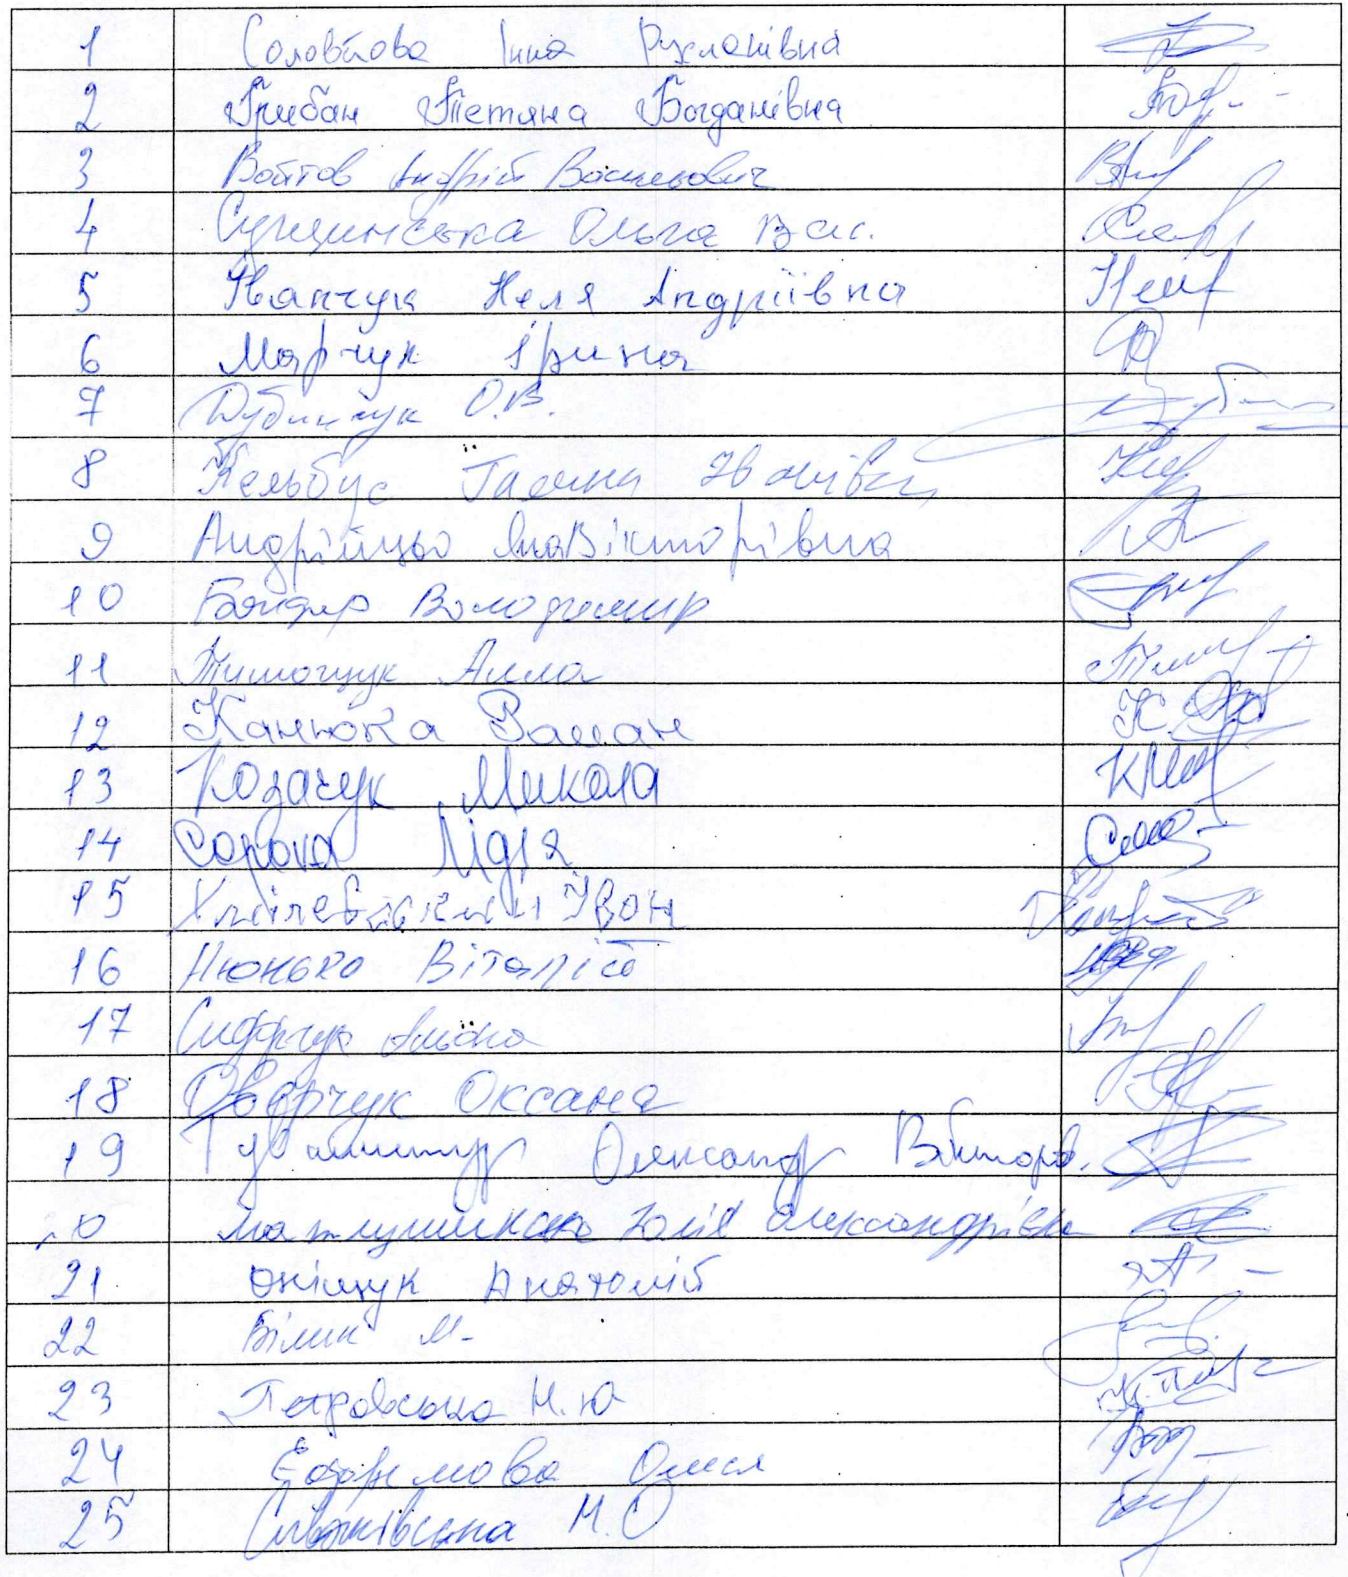 1 Соловйова Інна Русланівна
2 Грибан Тетяна Богданівна
3 Войтов Андрій Васильович
4 Ольга Вас.
5 Іванчук Неля Андріївна
6 Марчук Ірина
7 Дубинчук О.В.
8 Кельбус Галина Іванівна
9 Андрійцьо Яна Вікторівна
10 Бондар Володимир
11 Тимощук Алла
12 Канюка Роман
13 Козачук Микола
14 Сорока Лідія
15 Іван
16 Нюнько Віталій
17 Сидорчук Альона
18 Оксана
19 Олександр Вікторов.
Юлія Олександрівн
21 Оніщук Анатолій
22 Білик М.
23 Петровська Н.Ю
24 Єфрємова Олеся
25 М.О